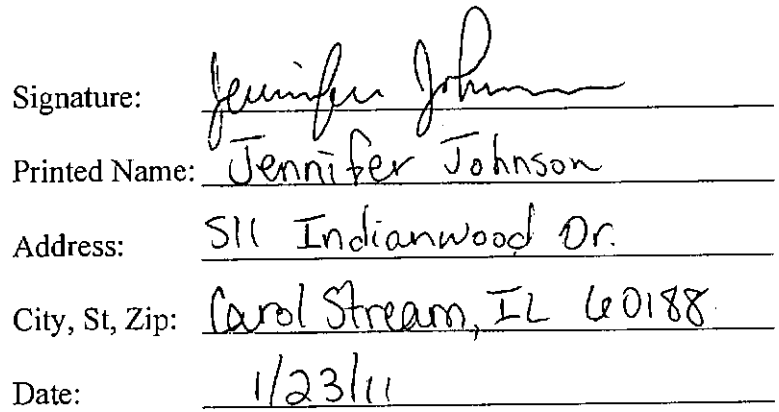 Signature: Jennifer Johnson
Printed Name: Jennifer Johnson
Address: 511 Indianwood Dr.
City, St, Zip: Carol Stream, IL 60188
Date: 1/23/11